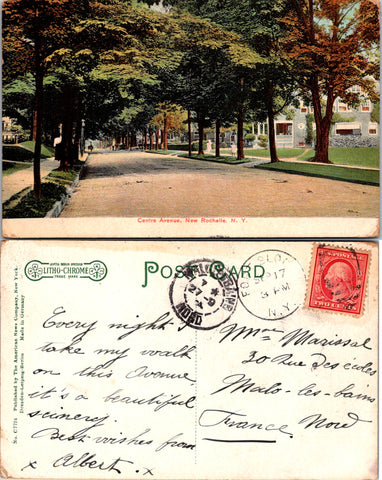 Centre Avenue, New Rochelle, N. Y.
LITHO-CHROME
TRADE MARK
POST CARD
No. C7714 Published by The American News Company, New York.
Dresden-Leipzig-Berlin Made in Germany
7 *
27-9
NORD
SEP 17
3 PM
N.Y.
Every night I
take my walk
on this Avenue,
it's a beautiful
scinery.
Best wishes from
x Albert. x
Mme Marissal
30 Rue des ecoles
Malo-les-bains
France Nord